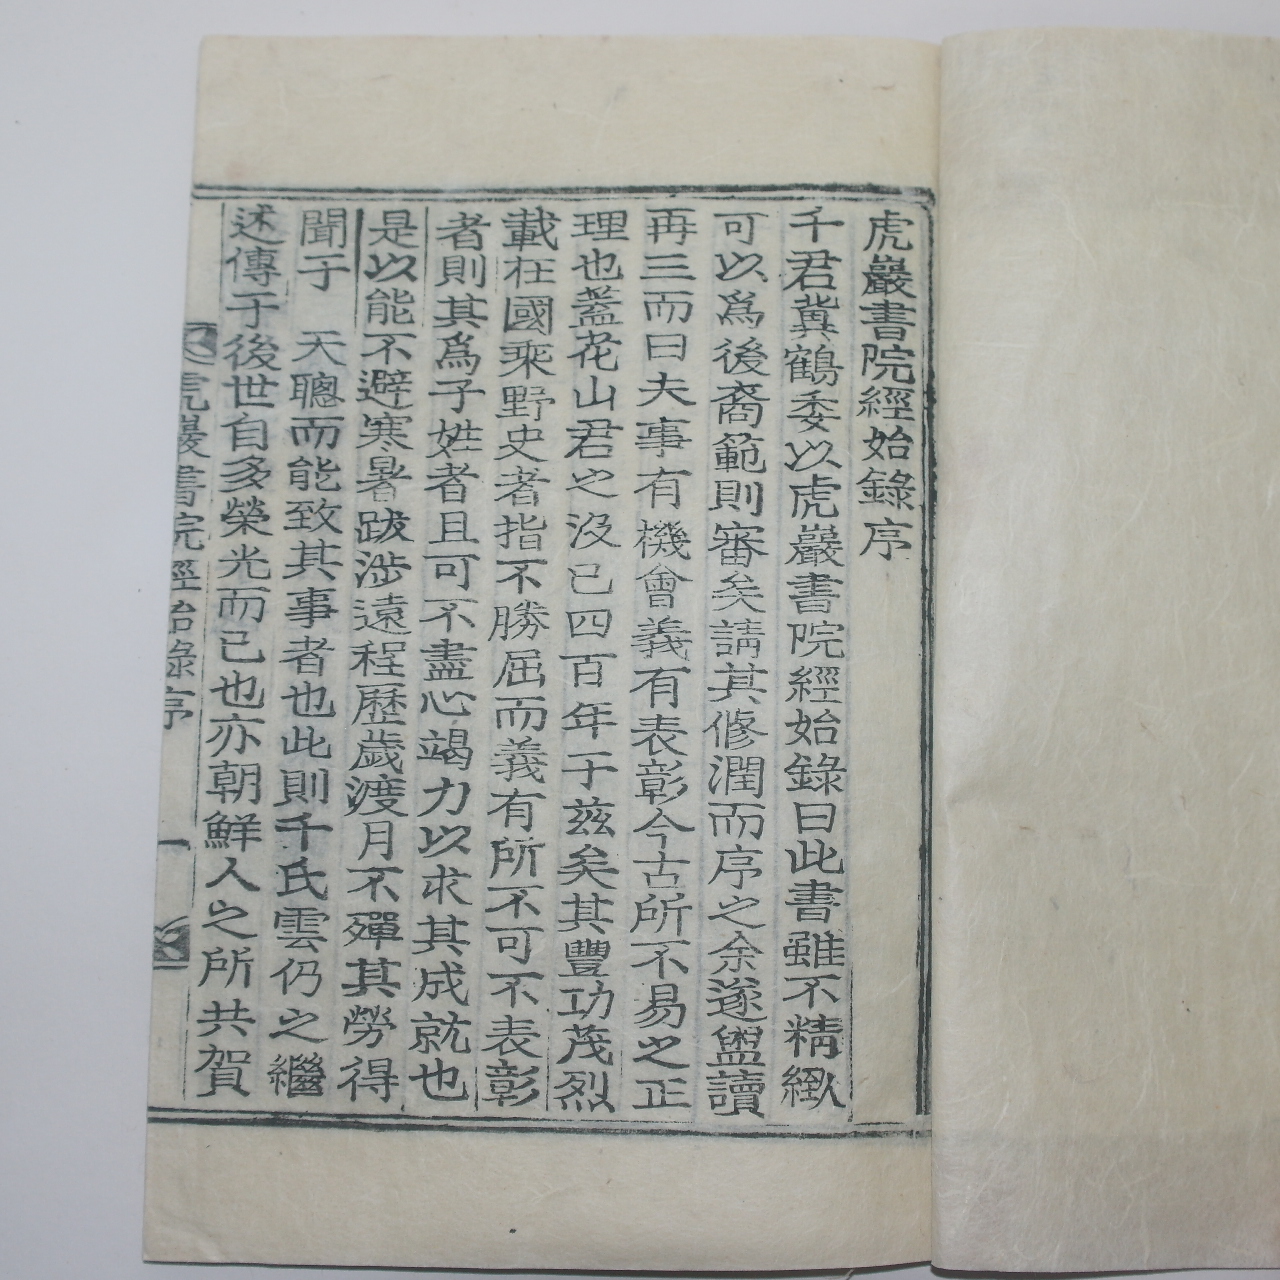 虎巖書院經始錄序
千君冀鶴委以虎巖書院經始錄曰此書雖不精緻
可以爲後裔範則審矣請其修潤而序之余遂盥讀
再三而曰夫事有機會義有表彰今古所不易之正
理也蓋花山君之沒已四百年于玆矣其豐功茂烈
載在國乘野史者指不勝屈而義有所不可不表彰
者則其爲子姓者且可不盡心竭力以求其成就也
是以能不避寒暑跋涉遠程歷歲渡月不殫其勞得
聞于 天聰而能致其事者也此則千氏雲仍之繼
述傳于後世自多榮光而已也亦朝鮮人之所共賀
虎巖書院經始錄序 一